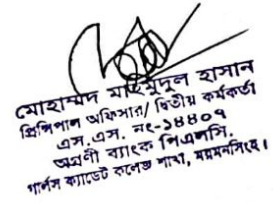 মোহাম্মদ মাহমুদুল হাসান
প্রিন্সিপাল অফিসার/ দ্বিতীয় কর্মকর্তা
এস.এস. নং-১৪৪০৭
অগ্রণী ব্যাংক পিএলসি.
গার্লস ক্যাডেট কলেজ শাখা, ময়মনসিংহ।